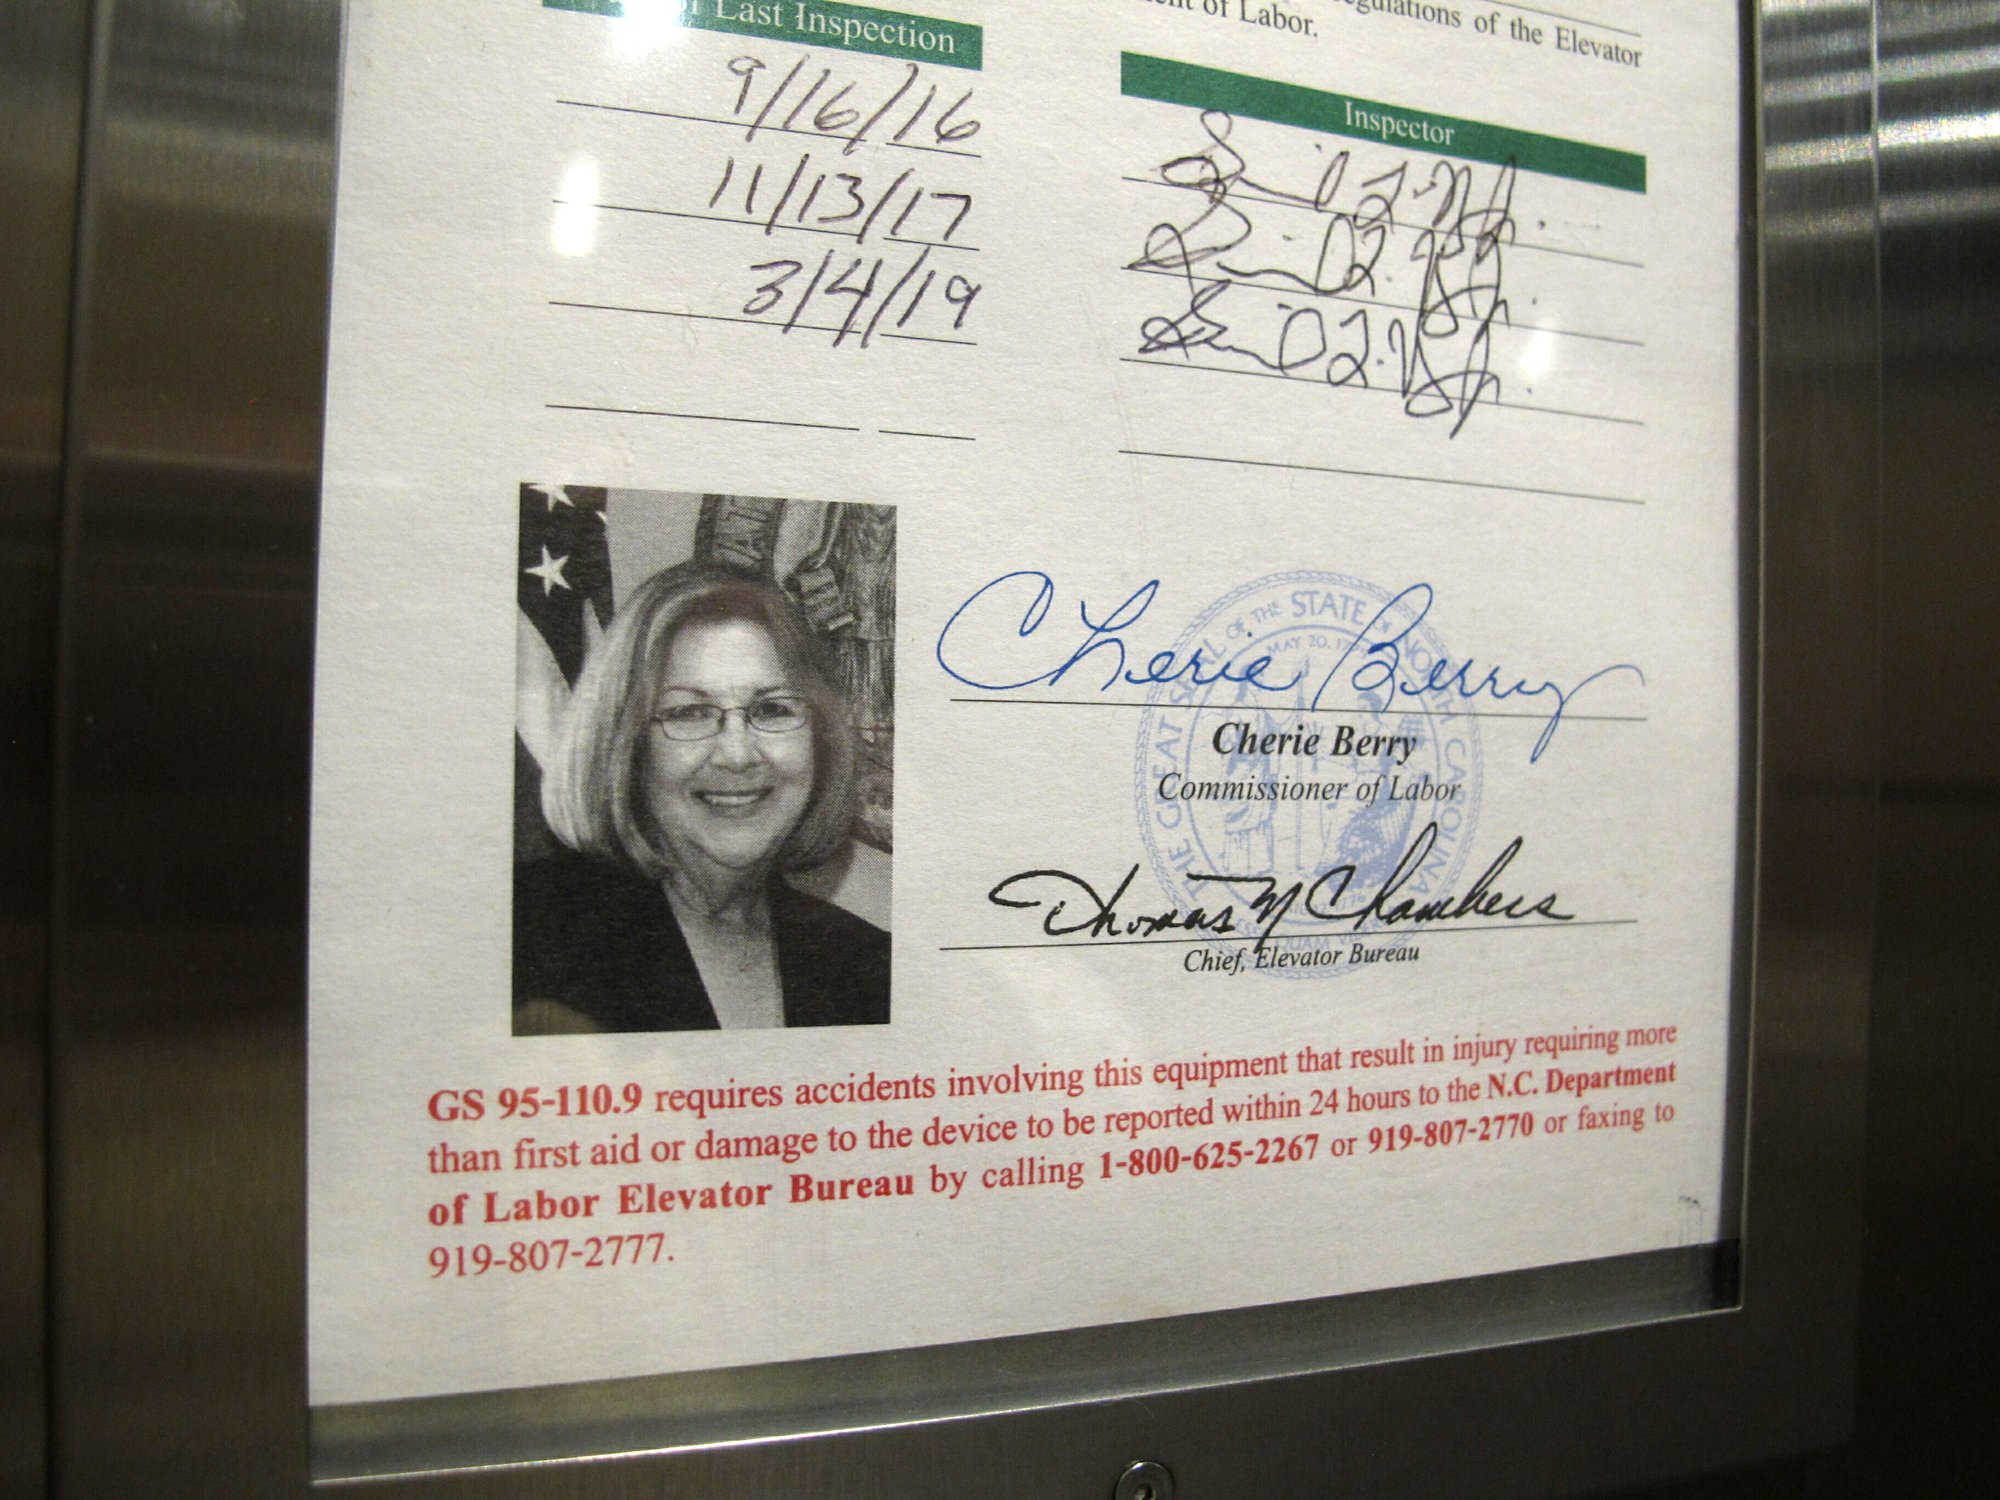 Last Inspection
egulations of the Elevator
of Labor.
Inspector
9/16/16
11/13/17
3/4/19
THE GREAT SEAL OF THE STATE OF NORTH CAROLINA
MAY 20, 17
Cherie Berry
Cherie Berry
Commissioner of Labor
Thomas N Chambers
Chief, Elevator Bureau
GS 95-110.9 requires accidents involving this equipment that result in injury requiring more
than first aid or damage to the device to be reported within 24 hours to the N.C. Department
of Labor Elevator Bureau by calling 1-800-625-2267 or 919-807-2770 or faxing to
919-807-2777.